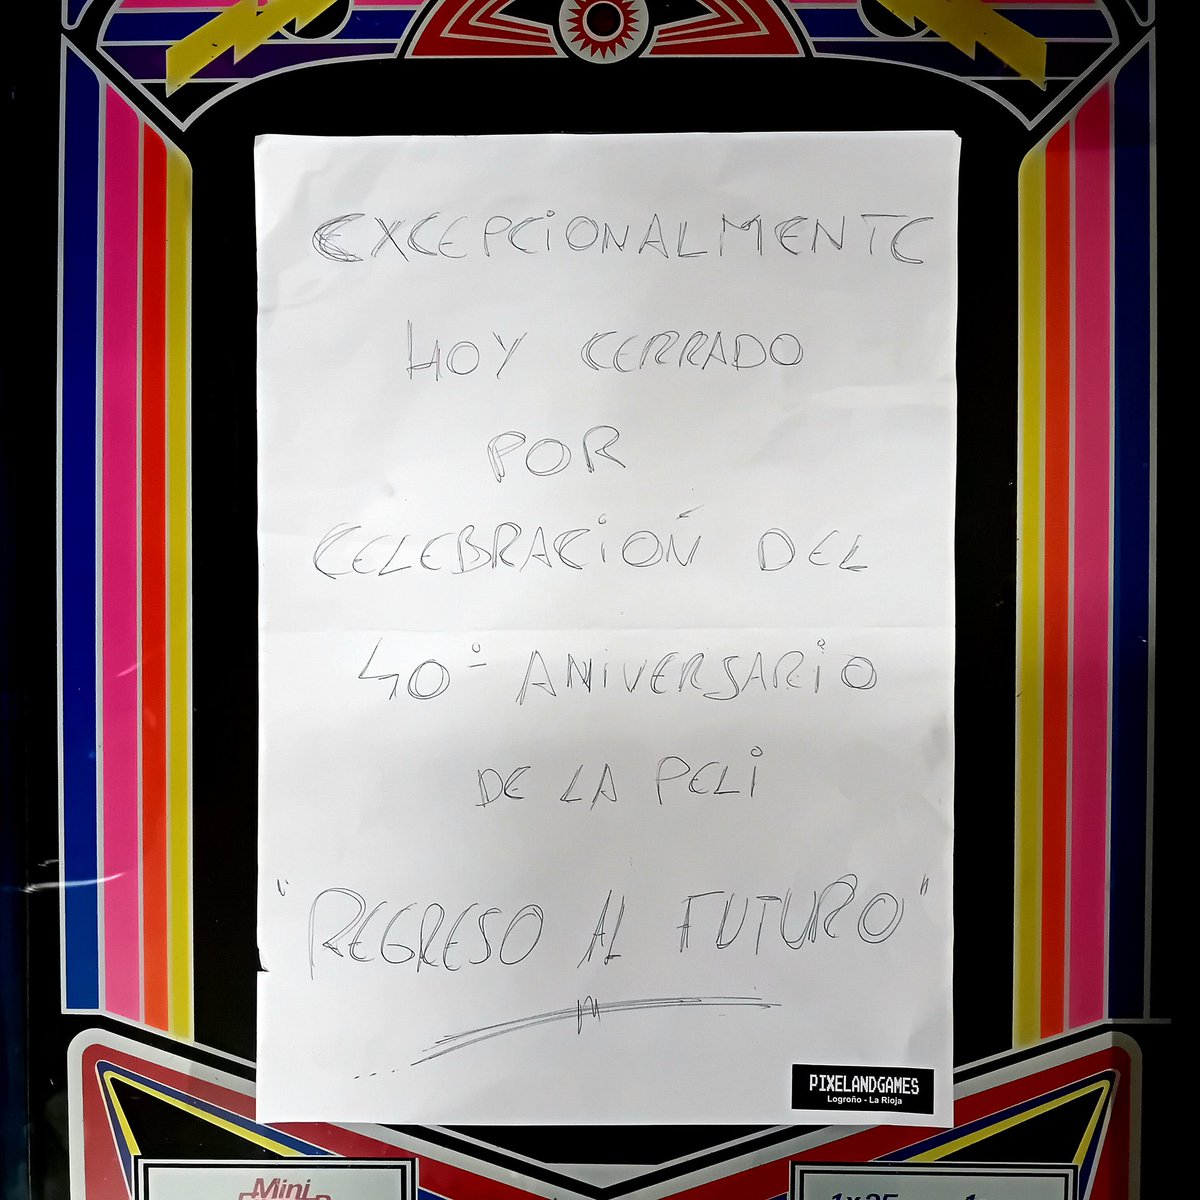 EXCEPCIONALMENTE
HOY CERRADO
POR
CELEBRACIÓN DEL
40º ANIVERSARIO
DE LA PELI
"REGRESO AL FUTURO"
PIXELANDGAMES
Logroño - La Rioja
Mini